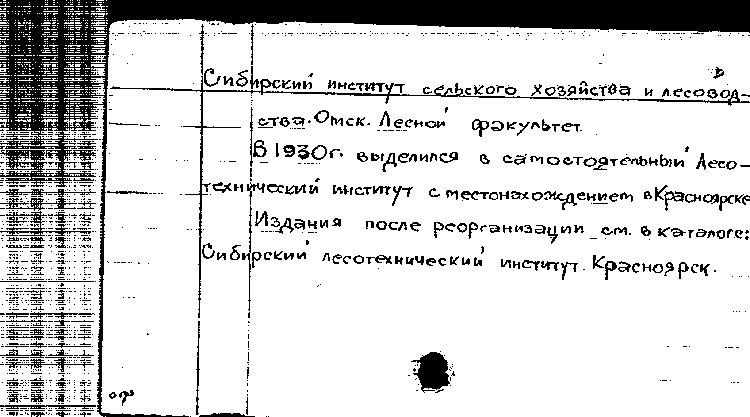 Сибирский институт сельского хозяйства и лесовод-
ства. Омск. Лесной факультет.
В 1930г. выделился в самостоятельный Лесо-
технический институт с местонахождением в Красноярске
Издания после реорганизации см. в каталоге:
Сибирский лесотехнический институт. Красноярск.